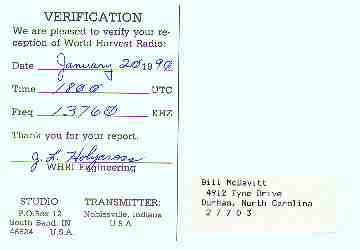 VERIFICATION
We are pleased to verify your re-
ception of World Harvest Radio:
Date January 20 1990
Time 1800 UTC
Freq 13760 KHZ
Thank you for your report.
J. L. Holycross
WHRI Engineering
STUDIO
P.O.Box 12
South Bend, IN
46624 U.S.A.
TRANSMITTER:
Noblesville, Indiana
U.S.A.
Bill McGavitt
4912 Tyne Drive
Durham, North Carolina
27703